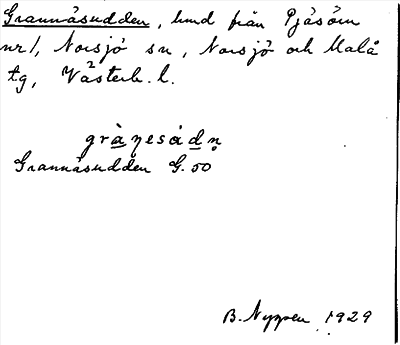 Grannäsudden, lund från Pjäsörn
nr 1, Norsjö sn, Norsjö och Malå
tg, Västerb. l.
grànesådn
Grannäsudden G. 50
B. Nyppen 1929